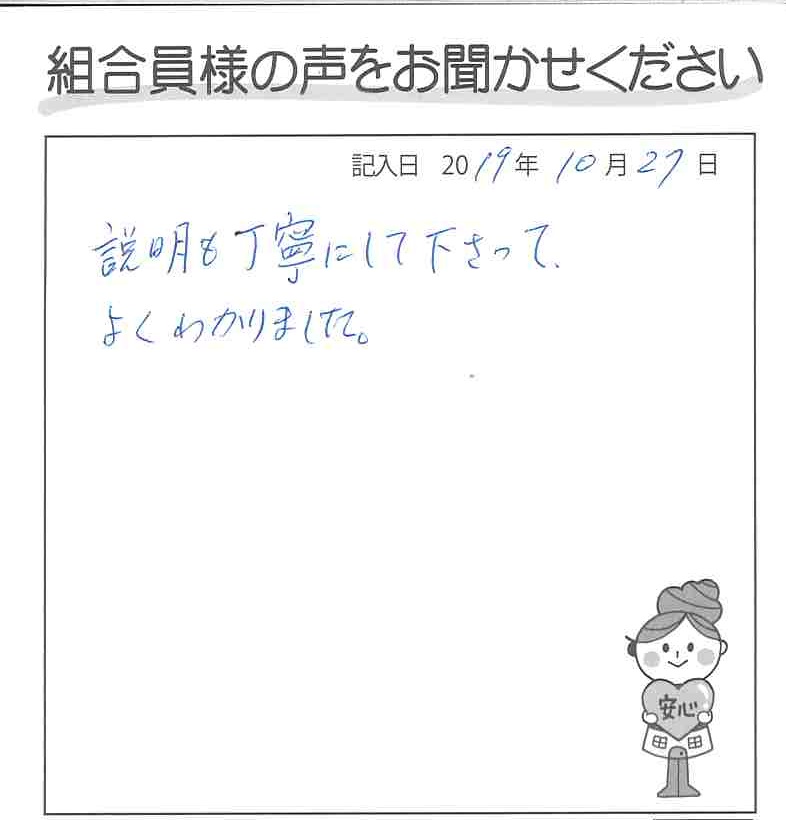 組合員様の声をお聞かせください
記入日 2019年 10月27日
説明も丁寧にして下さって、
よくわかりました。
安心